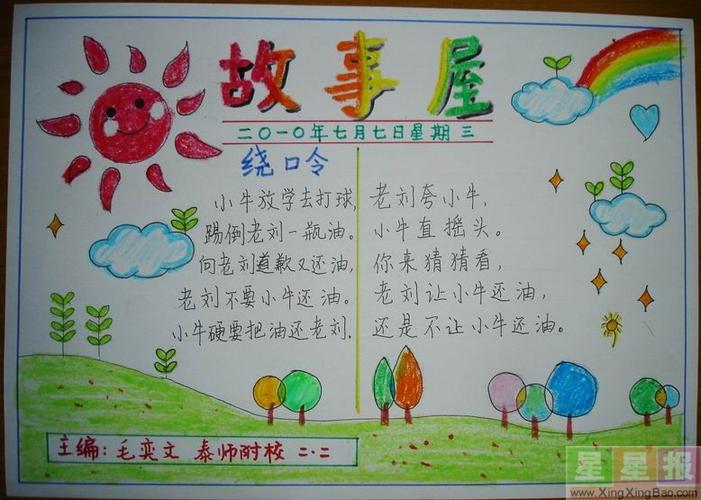 故事屋
二〇一〇年七月七日星期三
绕口令
小牛放学去打球,
踢倒老刘一瓶油。
向老刘道歉又还油,
老刘不要小牛还油。
小牛硬要把油还老刘.
老刘夸小牛,
小牛直摇头。
你来猜猜看,
老刘让小牛还油,
还是不让小牛还油。
主编:毛奕文 泰师附校 二·二
星星报
www.XingXingBao.com